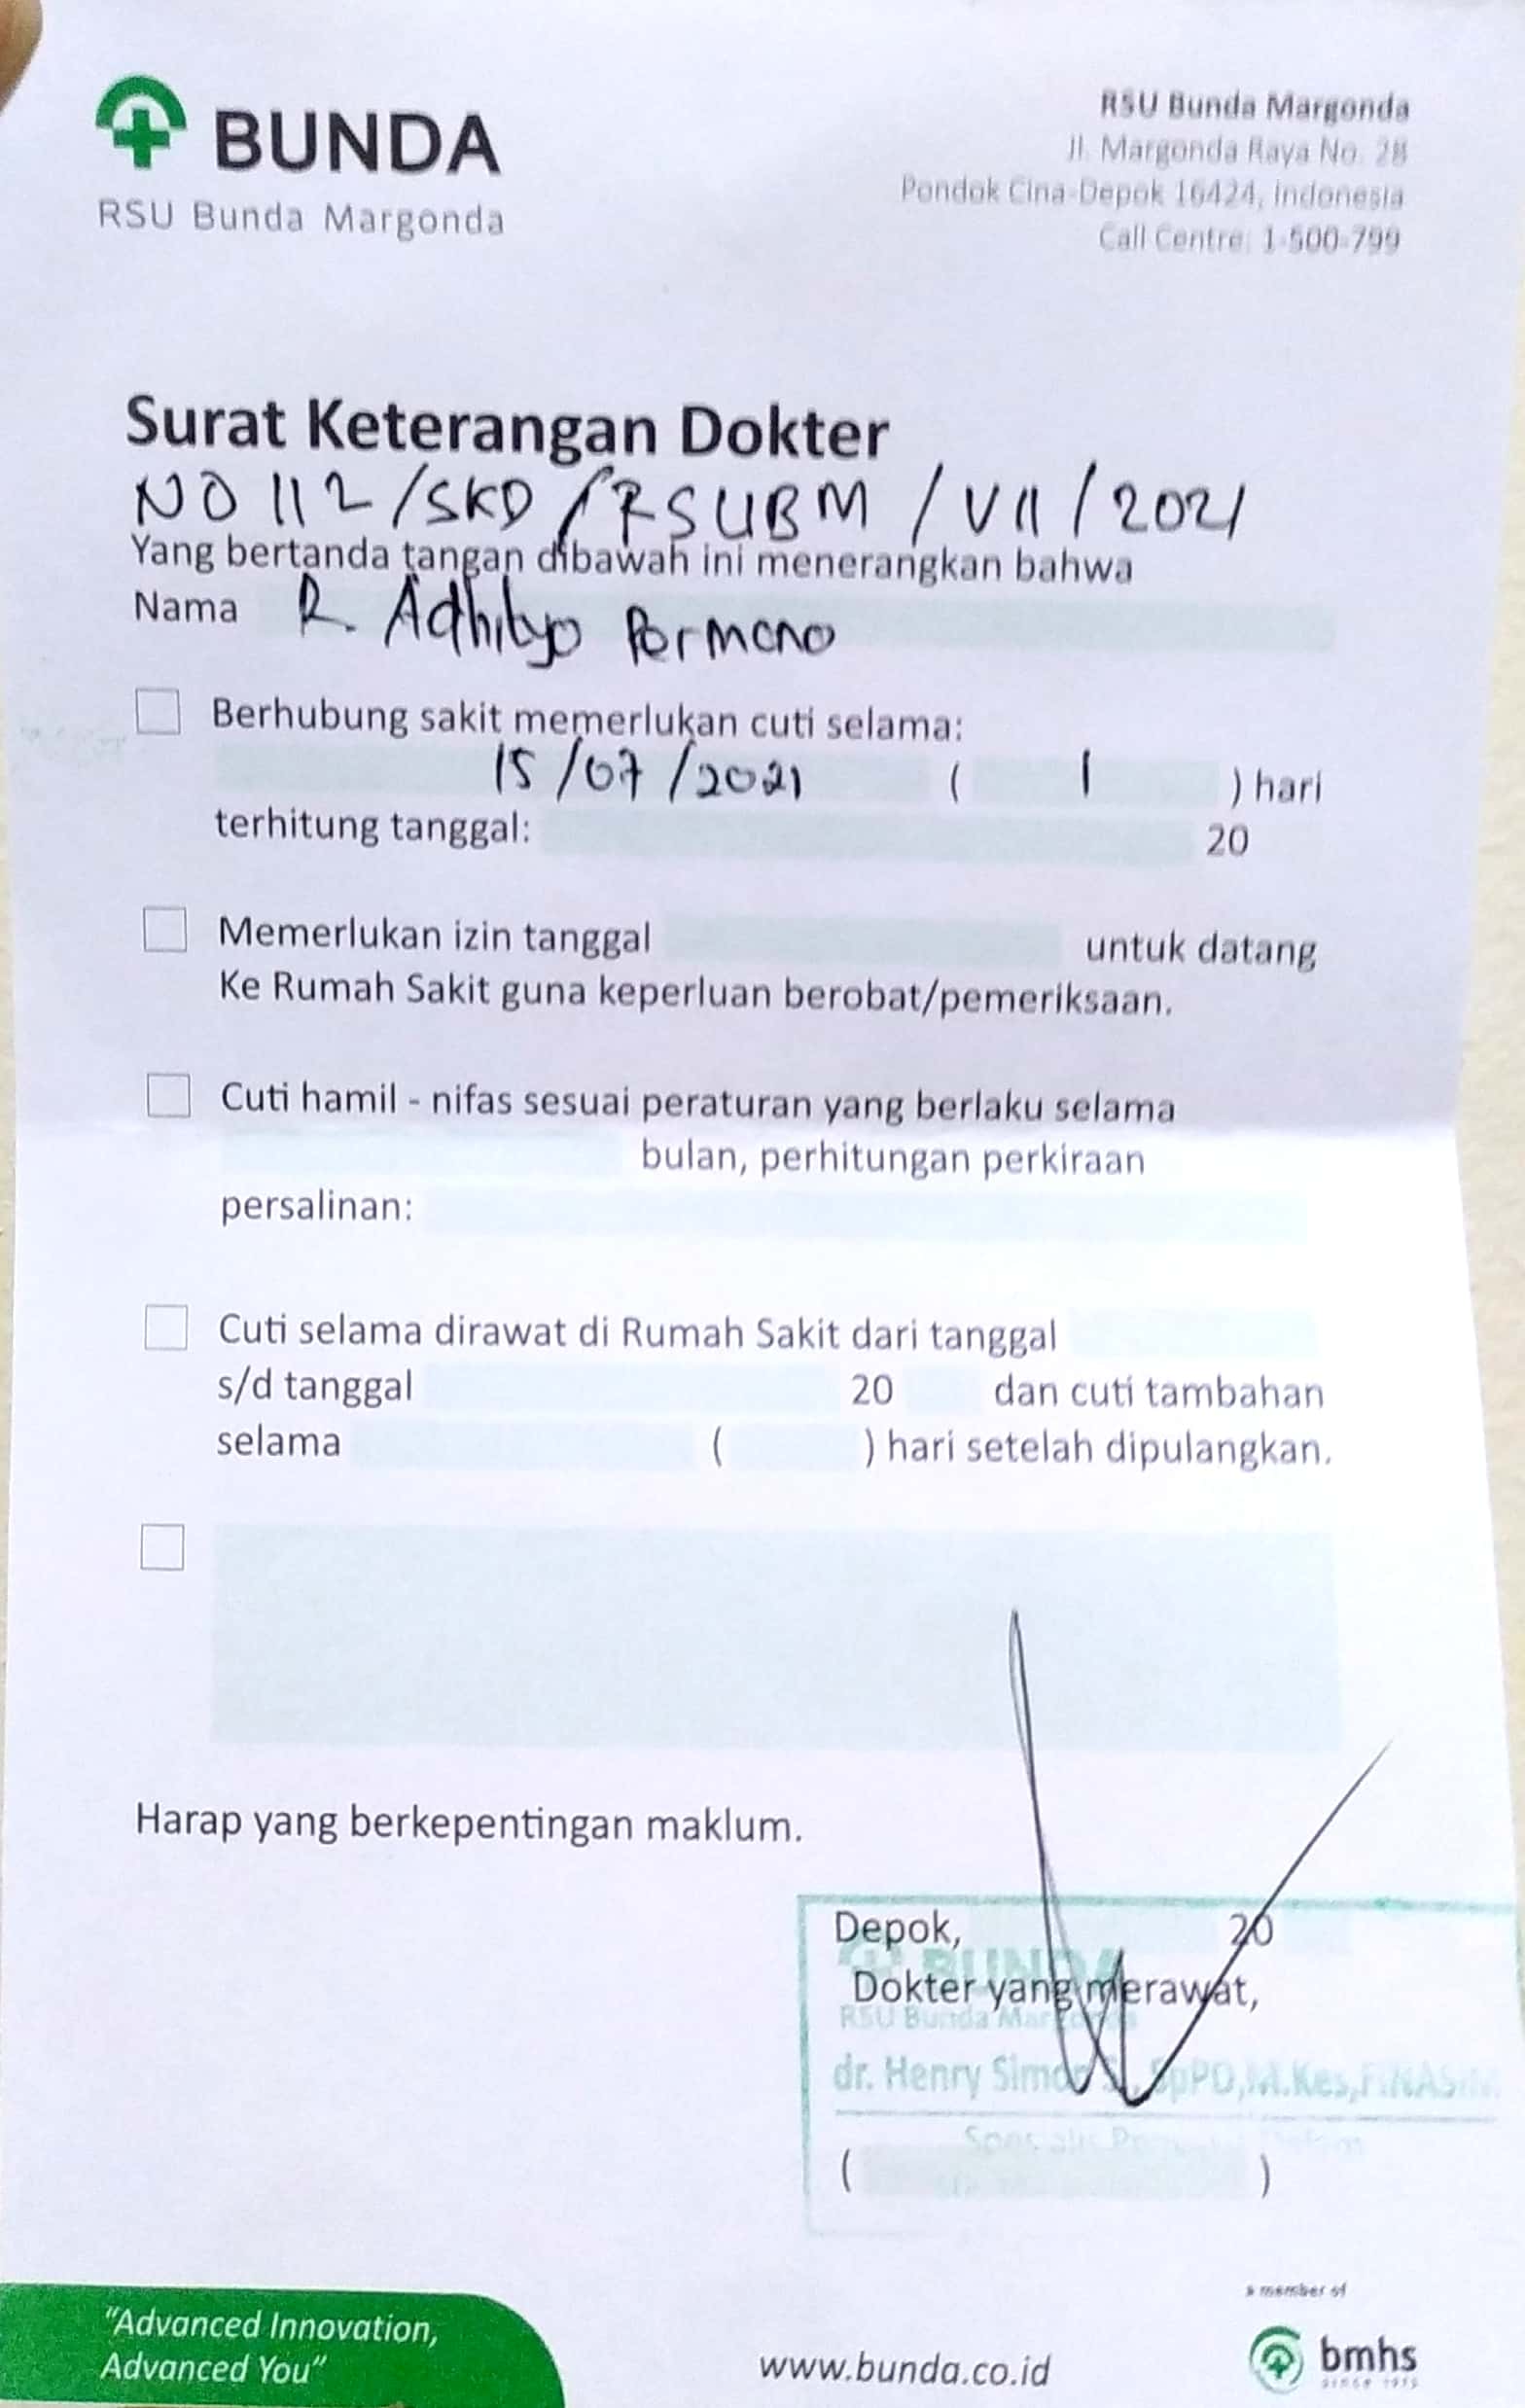 BUNDA
RSU Bunda Margonda
RSU Bunda Margonda
Jl. Margonda Raya No. 28
Pondok Cina-Depok 16424, Indonesia
Call Centre: 1-500-799
Surat Keterangan Dokter
NO 112/SKD/RSUBM/VII/2021
Yang bertanda tangan dibawah ini menerangkan bahwa
Nama R. Adhityo Permono
Berhubung sakit memerlukan cuti selama:
15/07/2021 ( 1 ) hari
terhitung tanggal: 20
Memerlukan izin tanggal untuk datang
Ke Rumah Sakit guna keperluan berobat/pemeriksaan.
Cuti hamil - nifas sesuai peraturan yang berlaku selama
bulan, perhitungan perkiraan
persalinan:
Cuti selama dirawat di Rumah Sakit dari tanggal
s/d tanggal 20 dan cuti tambahan
selama ( ) hari setelah dipulangkan.
Harap yang berkepentingan maklum.
Depok, 20
BUNDA
Dokter yang merawat,
RSU Bunda Margonda
dr. Henry Simon S., SpPD,M.Kes,FINASIM
( )
"Advanced Innovation,
Advanced You"
www.bunda.co.id
a member of
bmhs